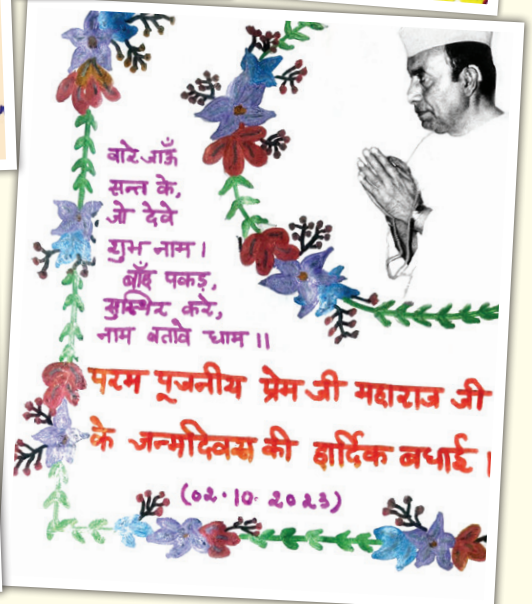 वारे जाऊँ
सन्त के,
जो देवे
शुभ नाम।
बाँह पकड़,
सुस्थिर करे,
नाम बतावे धाम।।
परम पूजनीय प्रेम जी महाराज जी
के जन्मदिवस की हार्दिक बधाई।
(02.10.2023)